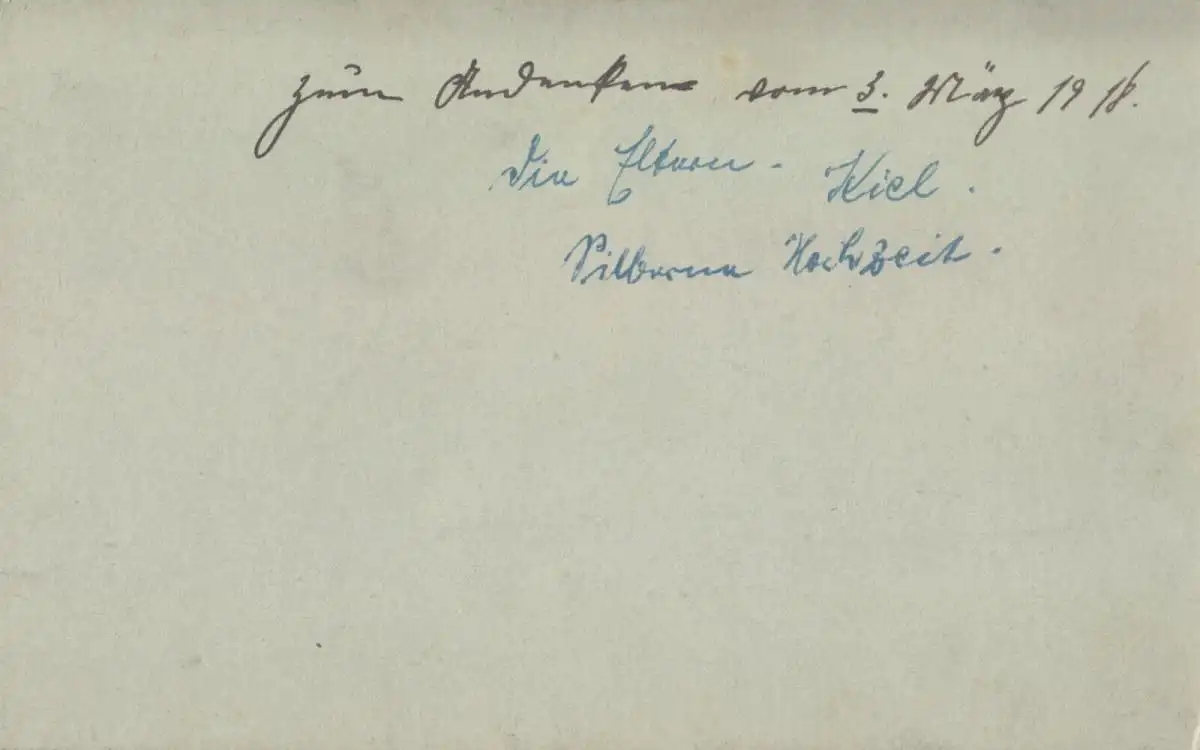 Zum Andenken vom 3. März 1918.
Die Eltern - Kiel.
Silberne Hochzeit.